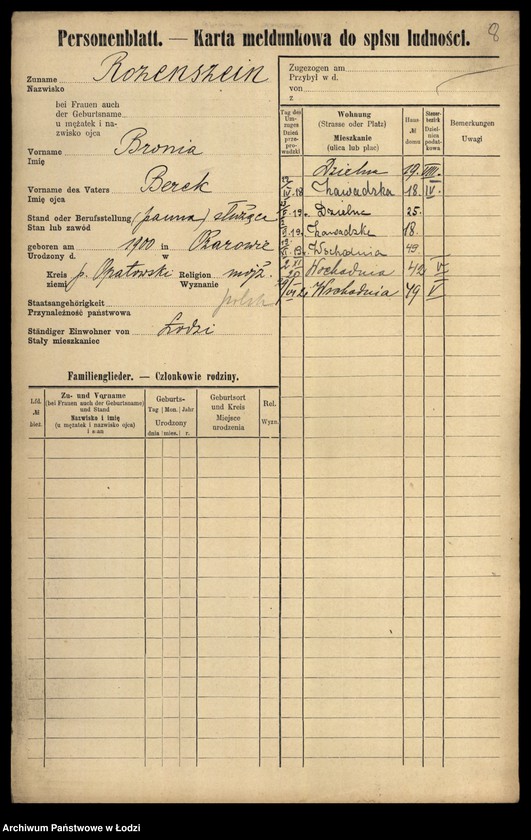 8
Personenblatt. — Karta meldunkowa do spisu ludności.
Zuname Rozenszein
Nazwisko
bei Frauen auch
der Geburtsname
u mężatek i na-
zwisko ojca
Vorname Bronia
Imię
Vorname des Vaters Berek
Imię ojca
Stand oder Berufsstellung (panna) służąca
Stan lub zawód
geboren am 1900 in Ożarowie
Urodzony d. w
Kreis p. Opatowski Religion mojż.
ziemi Wyznanie
Staatsangehörigkeit polsk
Przynależność państwowa
Ständiger Einwohner von Łodzi
Stały mieszkaniec
Zugezogen am
Przybył w d.
von
z
Tag des Um-zuges Dzień prze-prowadzki
Wohnung
(Strasse oder Platz)
Mieszkanie
(ulica lub plac)
Haus № domu
Steuer-bezirk Dziel-nica podat-kowa
Bemerkungen
Uwagi
Dzielna 19. VIII.
IV. 18 Zawadzka 18. IV.
19. Dzielna 25.
19. Zawadzka 18.
19. Wschodnia 49.
Wschodnia V
Wschodnia 49 V
Familienglieder. — Członkowie rodziny.
Lfd. № bież.
Zu- und Vorname
(bei Frauen auch der Geburtsname)
und Stand
Nazwisko i imię
(u mężatek i nazwisko ojca)
i stan
Geburts-
Tag Mon. Jahr
Urodzony
dnia mies. r.
Geburtsort
und Kreis
Miejsce
urodzenia
Rel.
Wyzn.
Archiwum Państwowe w Łodzi